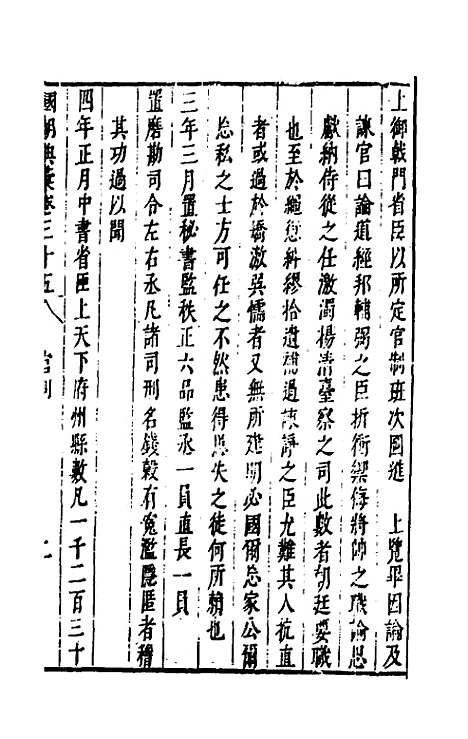 上御戟門省臣以所定官制班次圖進　上覽畢因論及
諫官曰論道經邦輔弼之臣折衝禦侮將帥之職論思
獻納侍從之任激濁揚清臺察之司此數者朝廷要職
也至於繩愆糾繆拾遺補過諫諍之臣尤難其人抗直
者或過於矯激巽懦者又無所建明必國爾忘家公爾
忘私之士方可任之不然患得患失之徒何所賴也
三年三月置秘書監秩正六品監丞一員直長一員
置磨勘司令左右丞凡諸司刑名錢穀有冤濫隱匿者稽
其功過以聞
四年正月中書省臣上天下府州縣數凡一千二百三十
國朝典彙卷三十五　官制　七